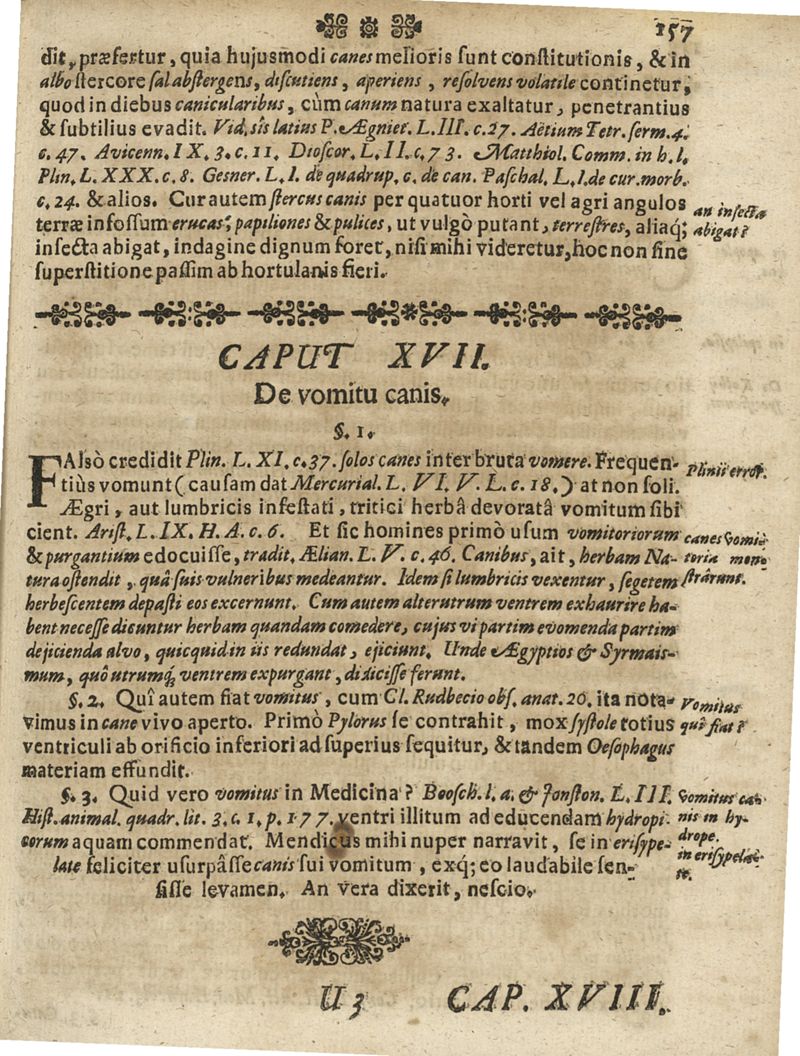 157
dit, præfertur, quia hujusmodi canes melioris sunt constitutionis, & in
albo stercore sal abstergens, discutiens, aperiens, resolvens volatile continetur,
quod in diebus canicularibus, cùm canum natura exaltatur, penetrantius
& subtilius evadit. Vid. sis latius P. Ægniet. L. III. c. 27. Aëtium Tetr. serm. 4.
c. 47. Avicenn. IX. 3. c. 11. Dioscor. L. II. c. 73. Matthiol. Comm. in h. l.
Plin. L. XXX. c. 8. Gesner. L. I. de quadrup. c. de can. Paschal. L. I. de cur. morb.
c. 24. & alios. Cur autem stercus canis per quatuor horti vel agri angulos
terræ infossum erucas, papiliones & pulices, ut vulgò putant, terrestres, aliaq;
insecta abigat, indagine dignum foret, nisi mihi videretur, hoc non sine
superstitione passim ab hortulanis fieri.
an insecta
abigat?
CAPUT XVII.
De vomitu canis.
§. 1.
FAlsò credidit Plin. L. XI. c. 37. solos canes inter bruta vomere. Frequen-
tiùs vomunt (causam dat Mercurial. L. VI. V. L. c. 18.) at non soli.
Ægri, aut lumbricis infestati, tritici herbâ devoratâ vomitum sibi
cient. Arist. L. IX. H. A. c. 6. Et sic homines primò usum vomitoriorum
& purgantium edocuisse, tradit. Ælian. L. V. c. 46. Canibus, ait, herbam Na-
tura ostendit, quâ suis vulneribus medeantur. Idem si lumbricis vexentur, segetem
herbescentem depasti eos excernunt. Cum autem alterutrum ventrem exhaurire ha-
bent necesse dicuntur herbam quandam comedere, cujus vi partim evomenda partim
dejicienda alvo, quicquid in iis redundat, ejiciunt. Unde Ægyptios & Syrmais-
mum, quô utrumq; ventrem expurgant, didicisse ferunt.
Plinii error.
canes vomi-
toria mon-
strârunt.
§. 2. Quî autem fiat vomitus, cum Cl. Rudbecio obs. anat. 20. ita nota-
vimus in cane vivo aperto. Primò Pylorus se contrahit, mox systole totius
ventriculi ab orificio inferiori ad superius sequitur, & tandem Oesophagus
materiam effundit.
Vomitus
quî fiat?
§. 3. Quid vero vomitus in Medicina? Boosch. l. a. & Jonston. L. III.
Hist. animal. quadr. tit. 3. c. 1. p. 177. ventri illitum ad educendam hydropi-
corum aquam commendat. Mendicus mihi nuper narravit, se in erisype-
late feliciter usurpâsse canis sui vomitum, exq; eo laudabile sen-
sisse levamen. An vera dixerit, nescio.
Vomitus ca-
nis in hy-
drope.
in erisypela-
te.
U 3
CAP. XVIII.